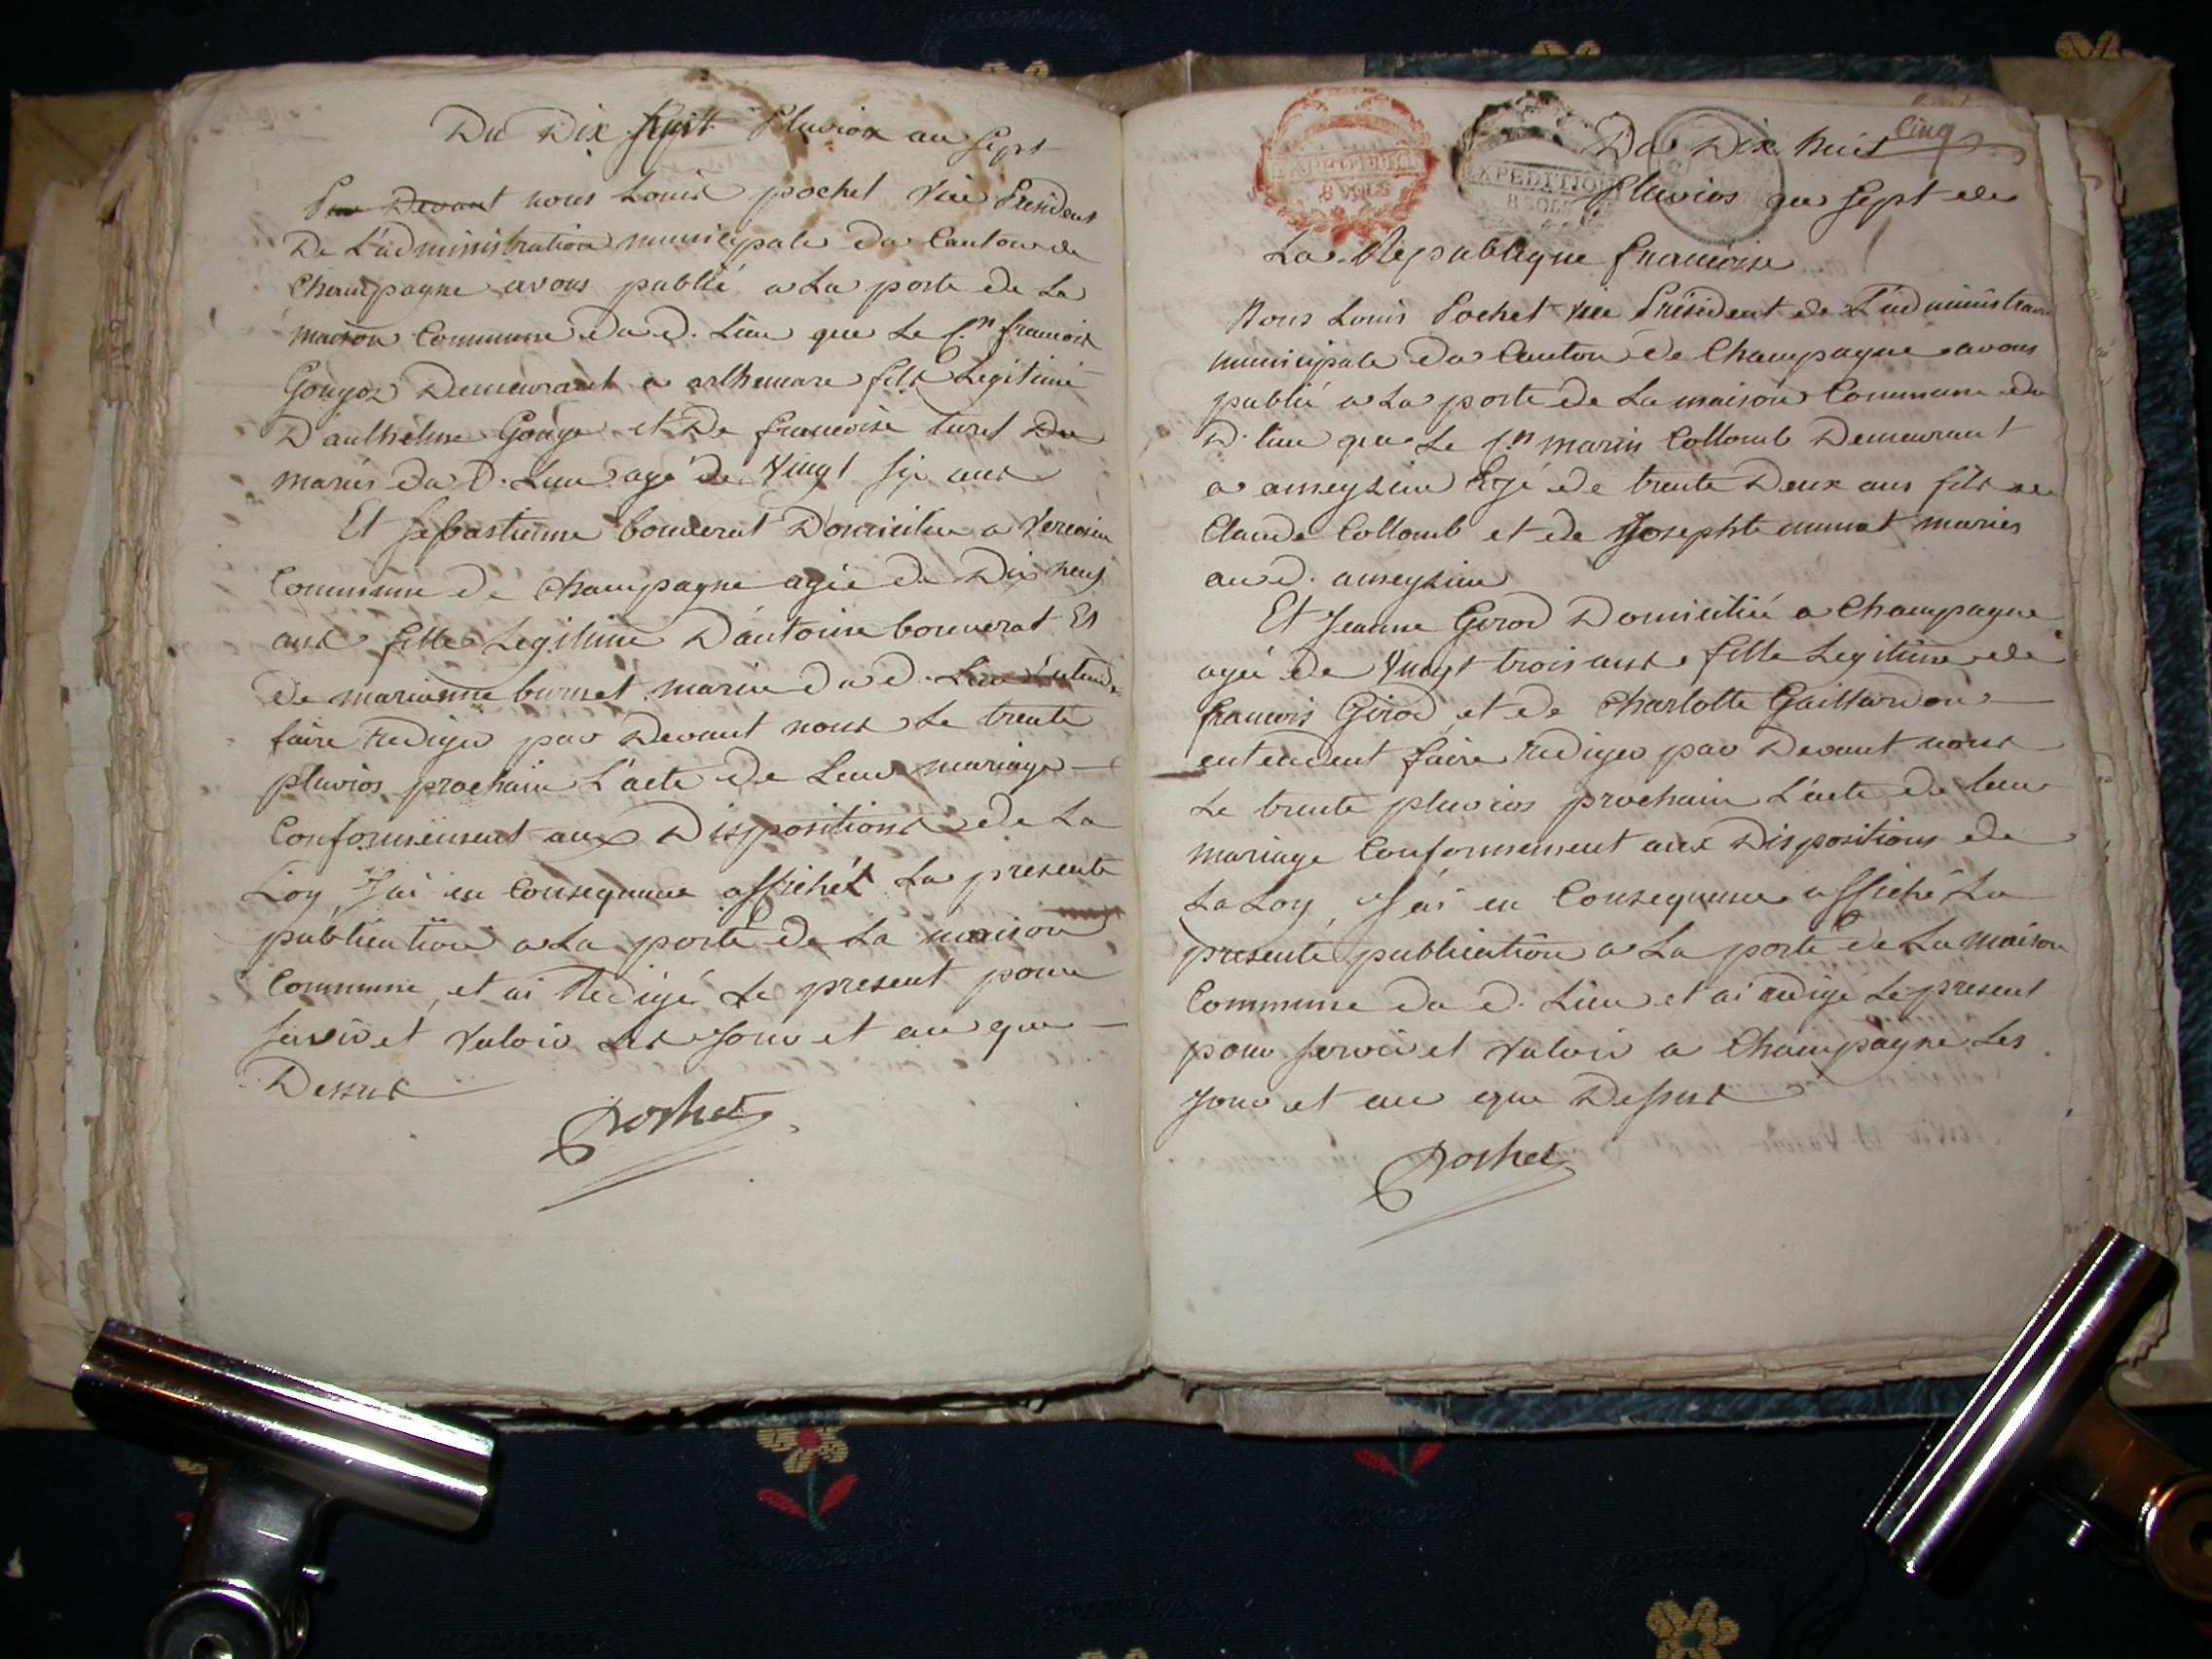 Du Dix huit Pluviox an Sept
Par Devant nous Louis pochet Vice President
De L'administration municipale Du Canton de
Champagne avons publié a La porte de La
maison Commune Du d. Lieu que Le C.n francois
Goujoz Demeurant a arthemare fils Legitime
D'anthelme Goujo et De francoise turet
mariés Du D. Lieu agé de Vingt six ans
Et sebastienne bonnerat Domicilié a Vercosin
Commune de Champagne agée de Dix neuf
ans fille Legitime D'antoine bonnerat Et
De marianne burnet mariés Du d. Lieu Entende
faire rediger par Devant nous Le trente
pluvios prochain L'acte de Leur mariage
Conformément aux Dispositions de La
Loy J'ai en Consequence affiché La presente
publication a La porte de La maison
Commune, et ai Redigé Le present pour
servir et Valoir Les Jour et an que
Dessus
Pochet
cinq
Du Dix huit
Pluvios an Sept de
La Republique francoise
EXPEDITION
8 SOLS
Nous Louis Pochet vice Président de L'administration
municipale Du Canton de Champagne avons
publié a La porte de La maison Commune du
D. lieu que Le C.n marin Collomb Demeurant
a ameyzieu agé de trente Deux ans fils de
Claude Collomb et de Josephte mariés
au d. ameyzieu
Et Jeanne Girod Domiciliée a Champagne
agée de Vingt trois ans fille Legitime de
francois Girod et de Charlotte Gaillardon
entendent faire rediger par Devant nous
Le trente pluvios prochain L'acte de leur
mariage Conformement aux Dispositions de
La Loy, J'ai en Consequence affiché La
presente publication a La porte de La maison
Commune du d. Lieu et ai redigé Le present
pour servir et valoir a Champagne Les
Jour et an que Dessus
Pochet